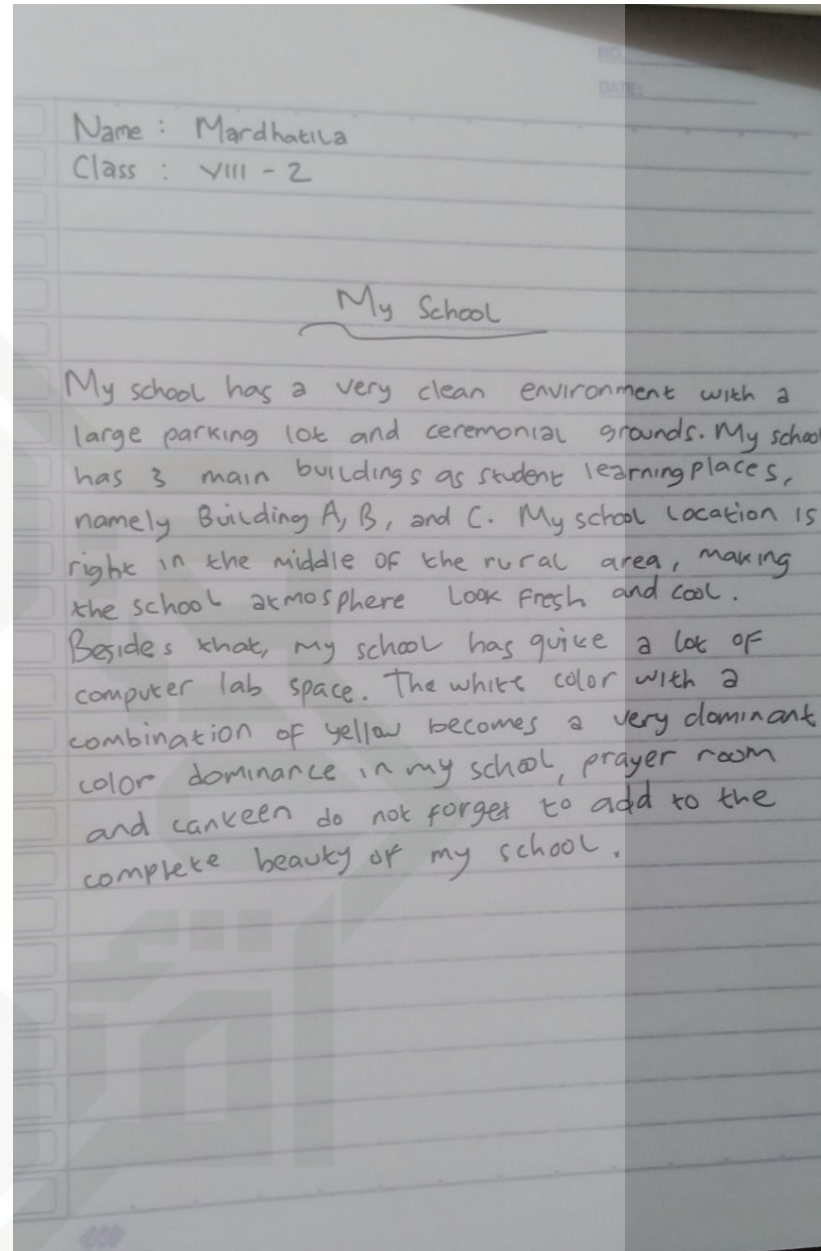 NO
DATE:
Name : Mardhatila
Class : VIII - 2
My School
My school has a very clean environment with a
large parking lot and ceremonial grounds. My school
has 3 main buildings as student learning places,
namely Building A, B, and C. My school Location is
right in the middle of the rural area, making
the school atmosphere Look Fresh and cool.
Besides that, my school has quite a lot of
computer lab space. The white color with a
combination of yellow becomes a very dominant
color dominance in my school, prayer room
and canteen do not forget to add to the
complete beauty of my school.